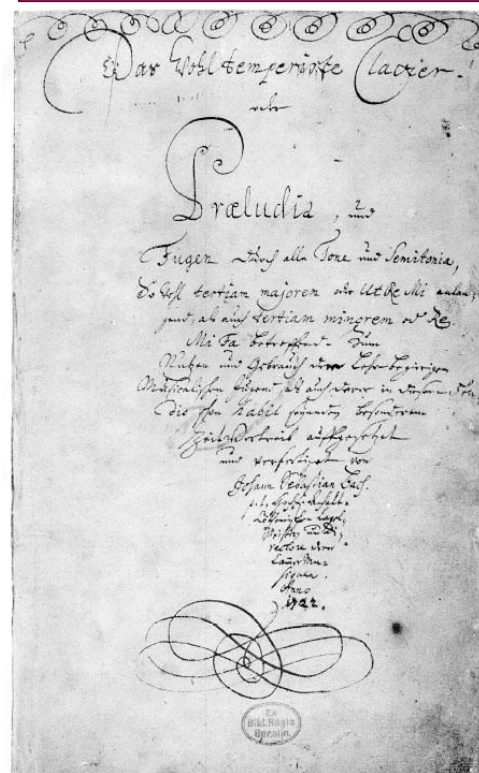 Das Wohltemperirte Clavier.
oder
Præludia, und
Fugen durch alle Tone und Semitonia,
So wohl tertiam majorem oder Ut Re Mi anlan-
gend, als auch tertiam minorem oder Re
Mi Fa betreffend. Zum
Nutzen und Gebrauch der Lehrbegierigen
Musicalischen Jugend, als auch derer in diesem stu-
dio schon habil seyenden besonderem
Zeitvertreib auffgesetzet
und verfertiget von
Johann Sebastian Bach.
p. t. HochFürstl. Anhalt-
Cöthenischen Capel-
Meistern und Di-
rectore derer
CammerMu-
siquen.
Anno
1722.
Ex
Bibl. Regia
Berolin.